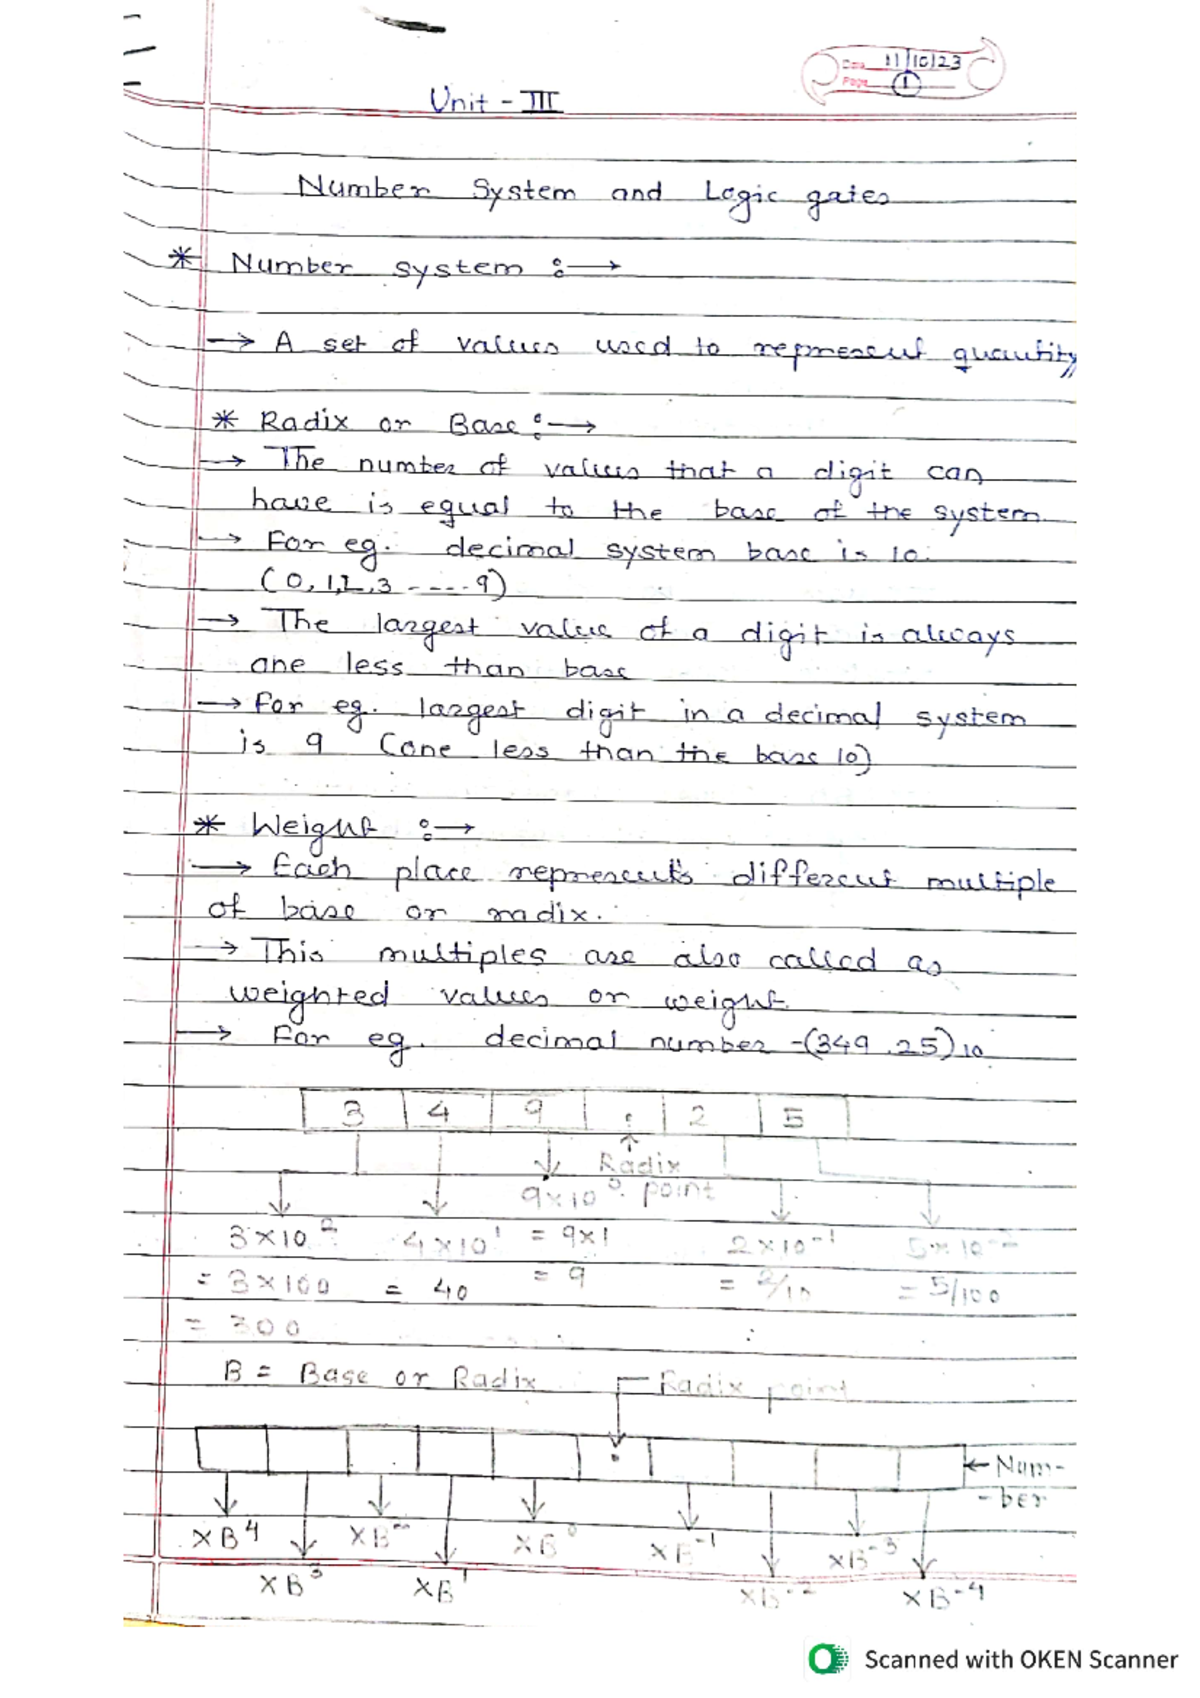 Date 11/10/23
Page 1
Unit - III
Number System and Logic gates
* Number system :→
→ A set of values used to represent quantity
* Radix or Base :→
→ The number of values that a digit can
have is equal to the base of the system
→ For eg. decimal system base is 10.
(0,1,2,3 ---- 9)
→ The largest value of a digit is always
one less than base
→ for eg. largest digit in a decimal system
is 9 (one less than the base 10)
* Weight :→
→ Each place represents different multiple
of base or radix.
→ This multiples are also called as
weighted values or weight
→ For eg. decimal number -(349.25)10
3 4 9 . 2 5
Radix
9×10⁰ point
3×10² 4×10¹ = 9×1 2×10⁻¹ 5×10⁻²
= 3×100 = 40 = 9 = 2/10 = 5/100
= 300
B = Base or Radix Radix point
. ← Num-
-ber
×B⁴ ×B ×B⁰ ×B⁻¹ ×B⁻³
×B³ ×B¹ ×B⁻² ×B⁻⁴
Scanned with OKEN Scanner